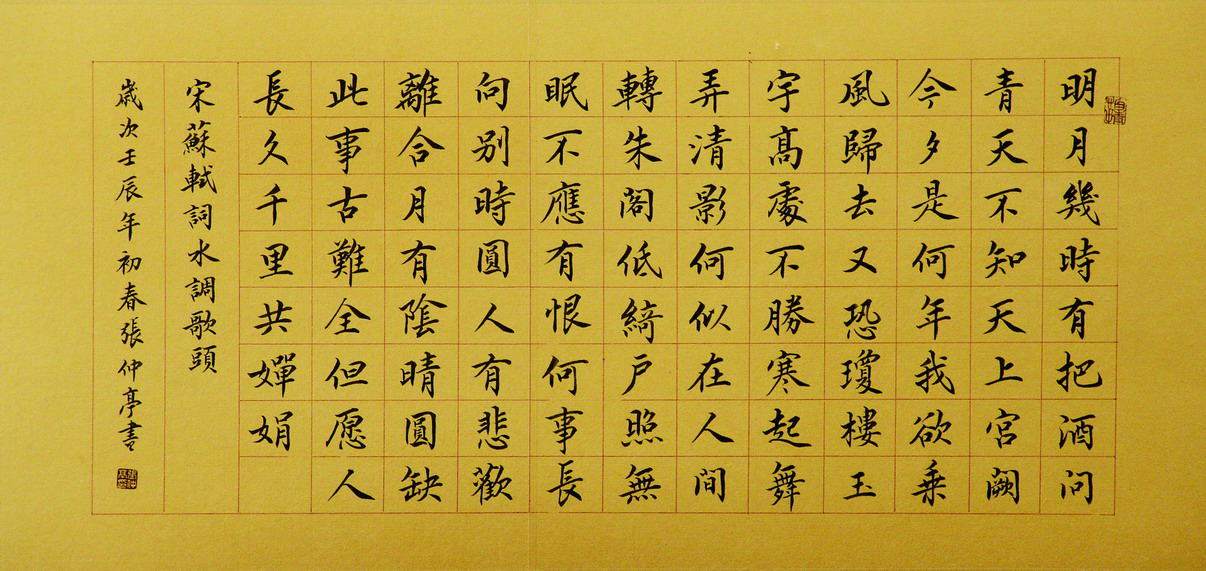 明月幾時有把酒問
青天不知天上宮闕
今夕是何年我欲乗
風歸去又恐瓊樓玉
宇髙處不勝寒起舞
弄清影何似在人間
轉朱閣低綺戶照無
眠不應有恨何事長
向别時圓人有悲歡
離合月有陰晴圓缺
此事古難全但愿人
長久千里共嬋娟
宋蘇軾詞水調歌頭
歲次壬辰年初春張仲亭書